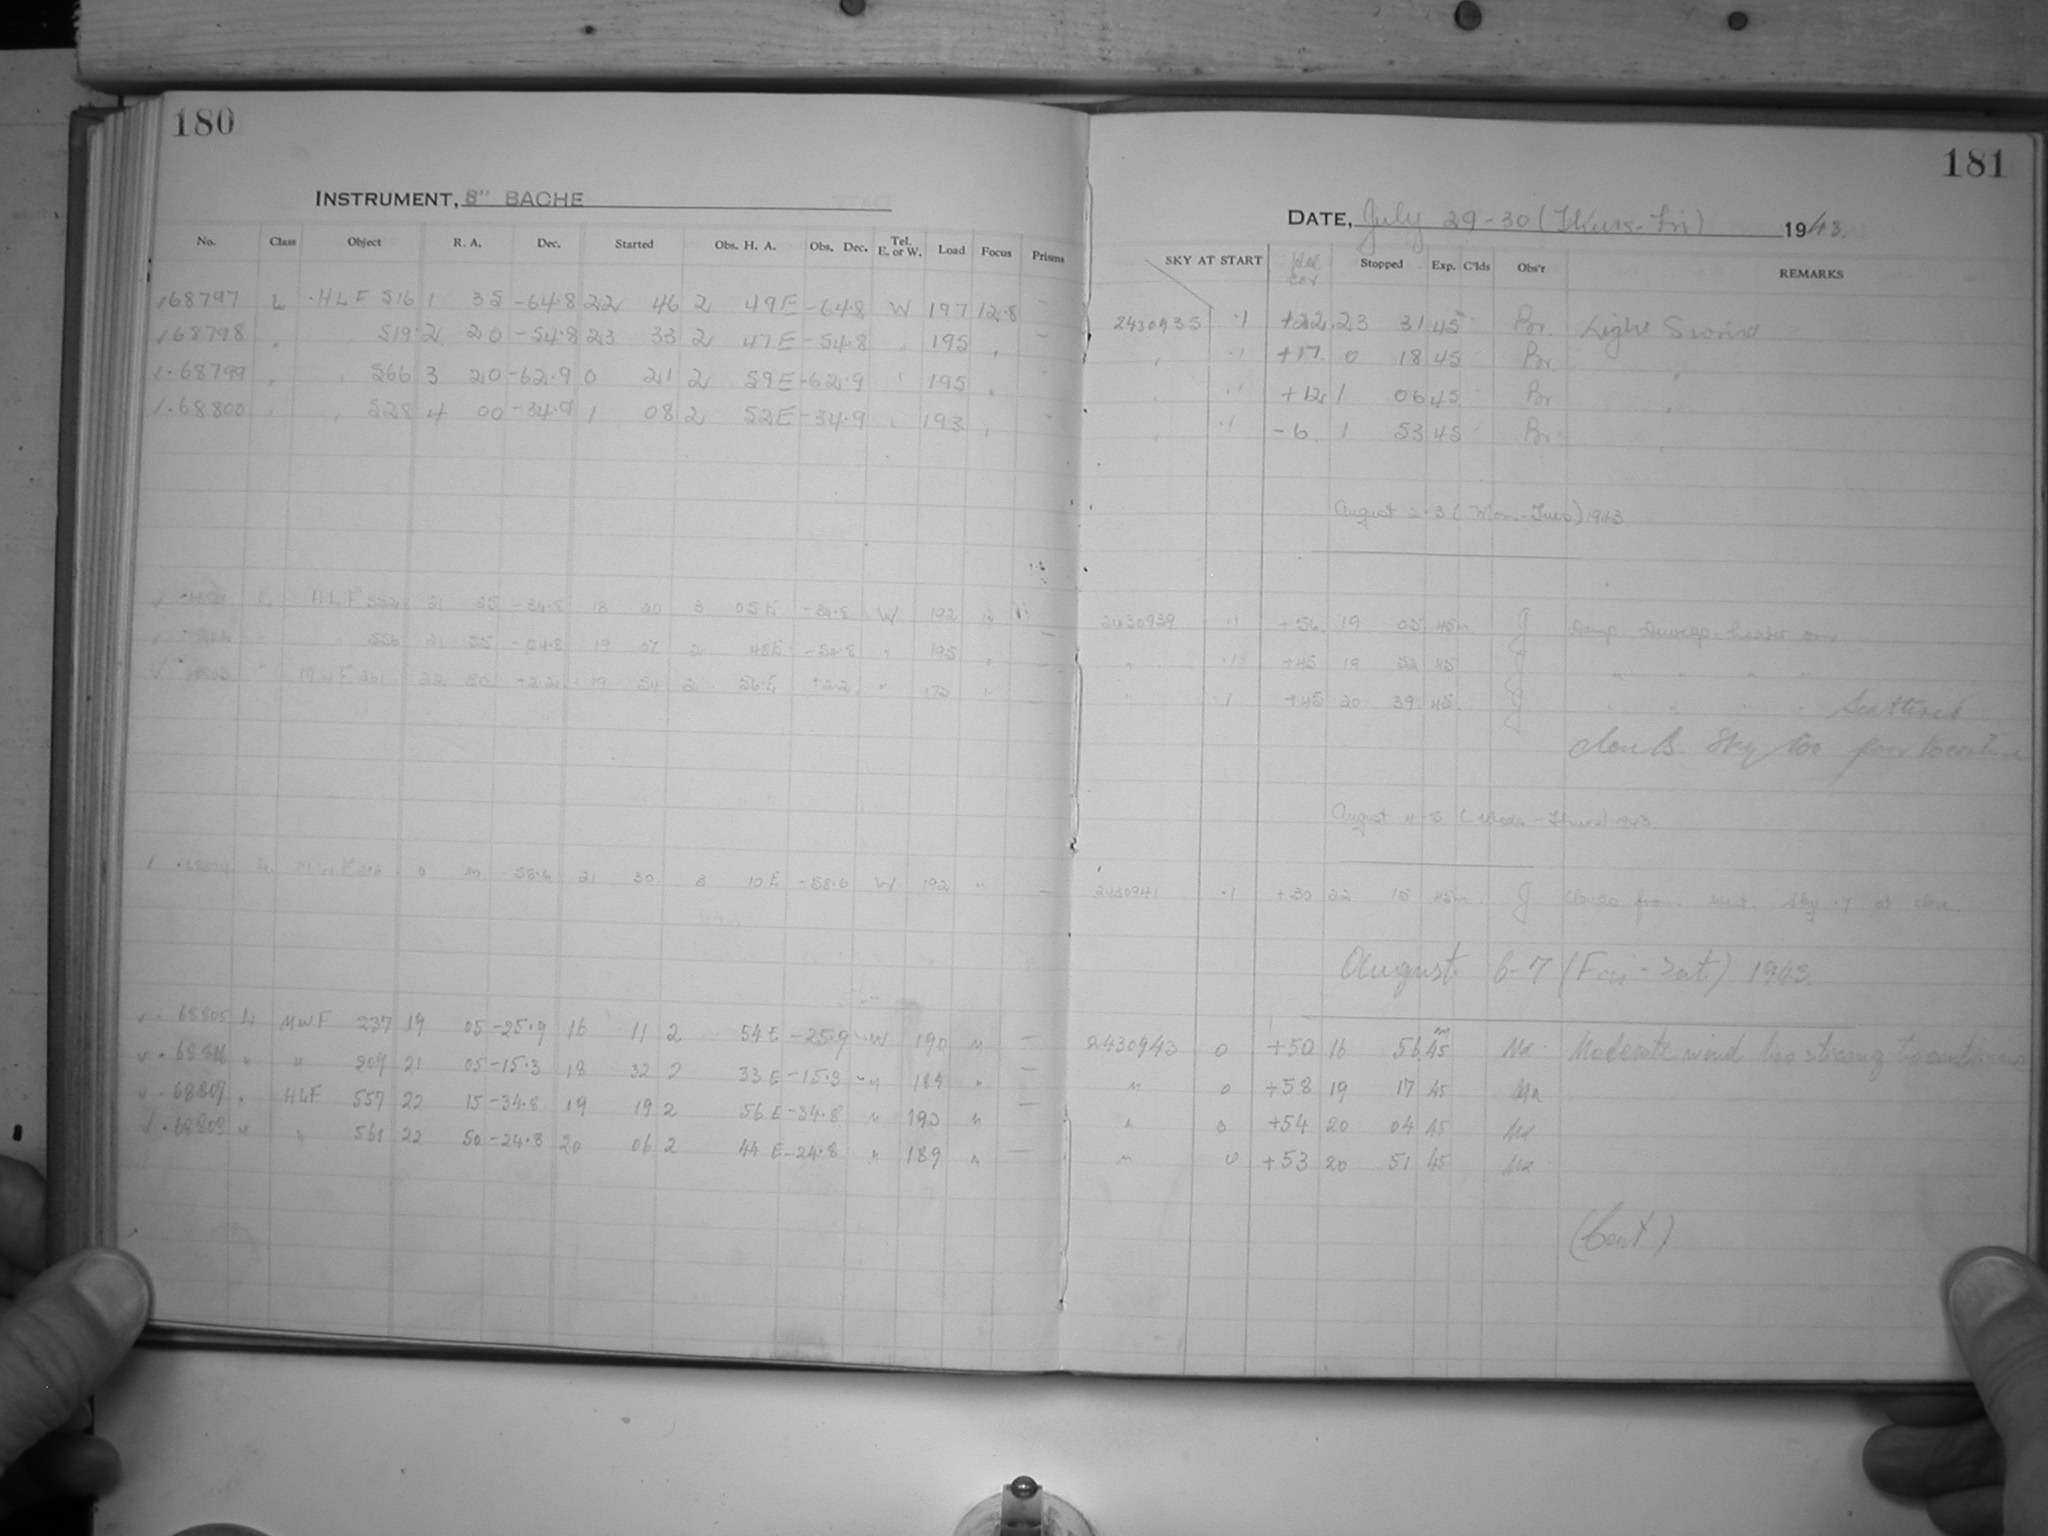 180
INSTRUMENT, 8" BACHE
No. Class Object R. A. Dec. Started Obs. H. A. Obs. Dec. Tel. E. or W. Load Focus Prisms
68797 L HLF 516 1 35 -64.8 22 46 2 49E -64.8 W 197 12.8 —
68798 " " 519 2 20 -54.8 23 33 2 47E -54.8 " 195 " —
68799 " " 566 3 20 -62.9 0 21 2 59E -62.9 " 195 "
68800 " " 528 4 00 -34.9 1 08 2 52E -34.9 " 193 " "
L HLF 552 21 25 -34.8 18 20 3 05E -34.8 W 192
" " 556 21 55 -54.8 19 07 2 48E -54.8 " 195 " —
" MWF 22 50 +2.2 19 54 2 56E +2.2 " 172 " —
L MWF 0 m -58.6 21 30 3 10E -58.6 W 192 " —
68805 L MWF 237 19 05 -25.9 16 11 2 54E -25.9 W 190 " —
68806 " " 209 21 05 -15.3 18 32 2 33E -15.3 " 184 " —
68807 " HLF 557 22 15 -34.8 19 19 2 56E -34.8 " 193 " —
68808 " " 561 22 50 -24.8 20 06 2 44E -24.8 " 189 " —
181
DATE, July 29-30 (Thurs-Fri) 1943.
SKY AT START Stopped Exp. C'lds Obs'r REMARKS
2430935 .1 +22 23 31 45 Br Light S wind
" .1 +17 0 18 45 Br "
" .1 +12 1 06 45 Br "
" .1 -6 1 53 45 Br "
August 2-3 (Mon-Tues) 1943
2430939 .1 +56 19 05 45m J Damp. Dewcap heater on.
" .1 +45 19 52 45 J " " " "
" .1 +45 20 39 45 J " " " " Scattered
clouds. Sky too poor to continue
August 4-5 (Weds-Thurs) 1943.
2430941 .1 +30 22 15 45m J Clouds from west. Sky .7 at close.
August 6-7 (Fri-Sat) 1943
2430943 0 +50 16 56 45m Ma Moderate wind too strong to continue
" 0 +58 19 17 45 Ma
" 0 +54 20 04 45 Ma
" 0 +53 20 51 45 Ma
(Cont)